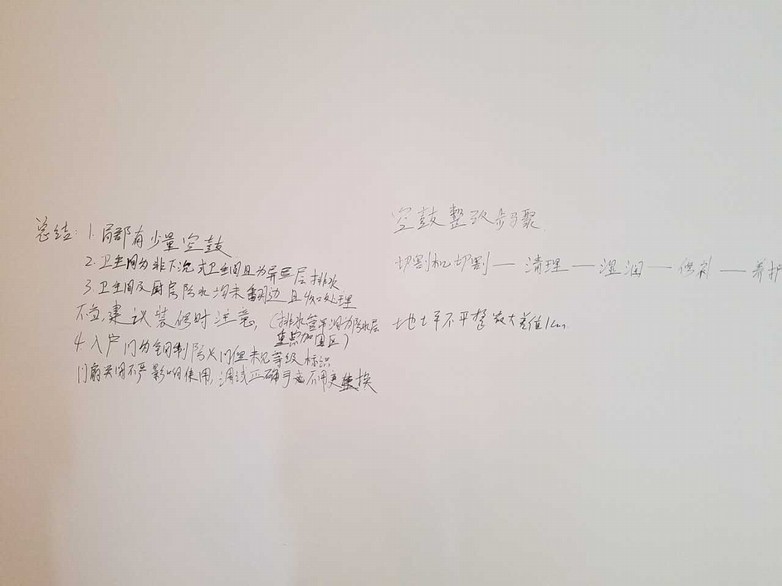 总结: 1.局部有少量空鼓
2.卫生间为非下沉式卫生间且为异层排水
3.卫生间及厨房防水均未翻边且收口处理
不当建议装修时注意,(排水管等为防水层
重点加固区)
4.入户门为钢制防火门但未见等级标识
门扇关闭不严影响使用,调试正确 不用更换
空鼓整改步骤
切割机切割—清理—湿润—修补—养护
地坪不平整 最大差值1cm